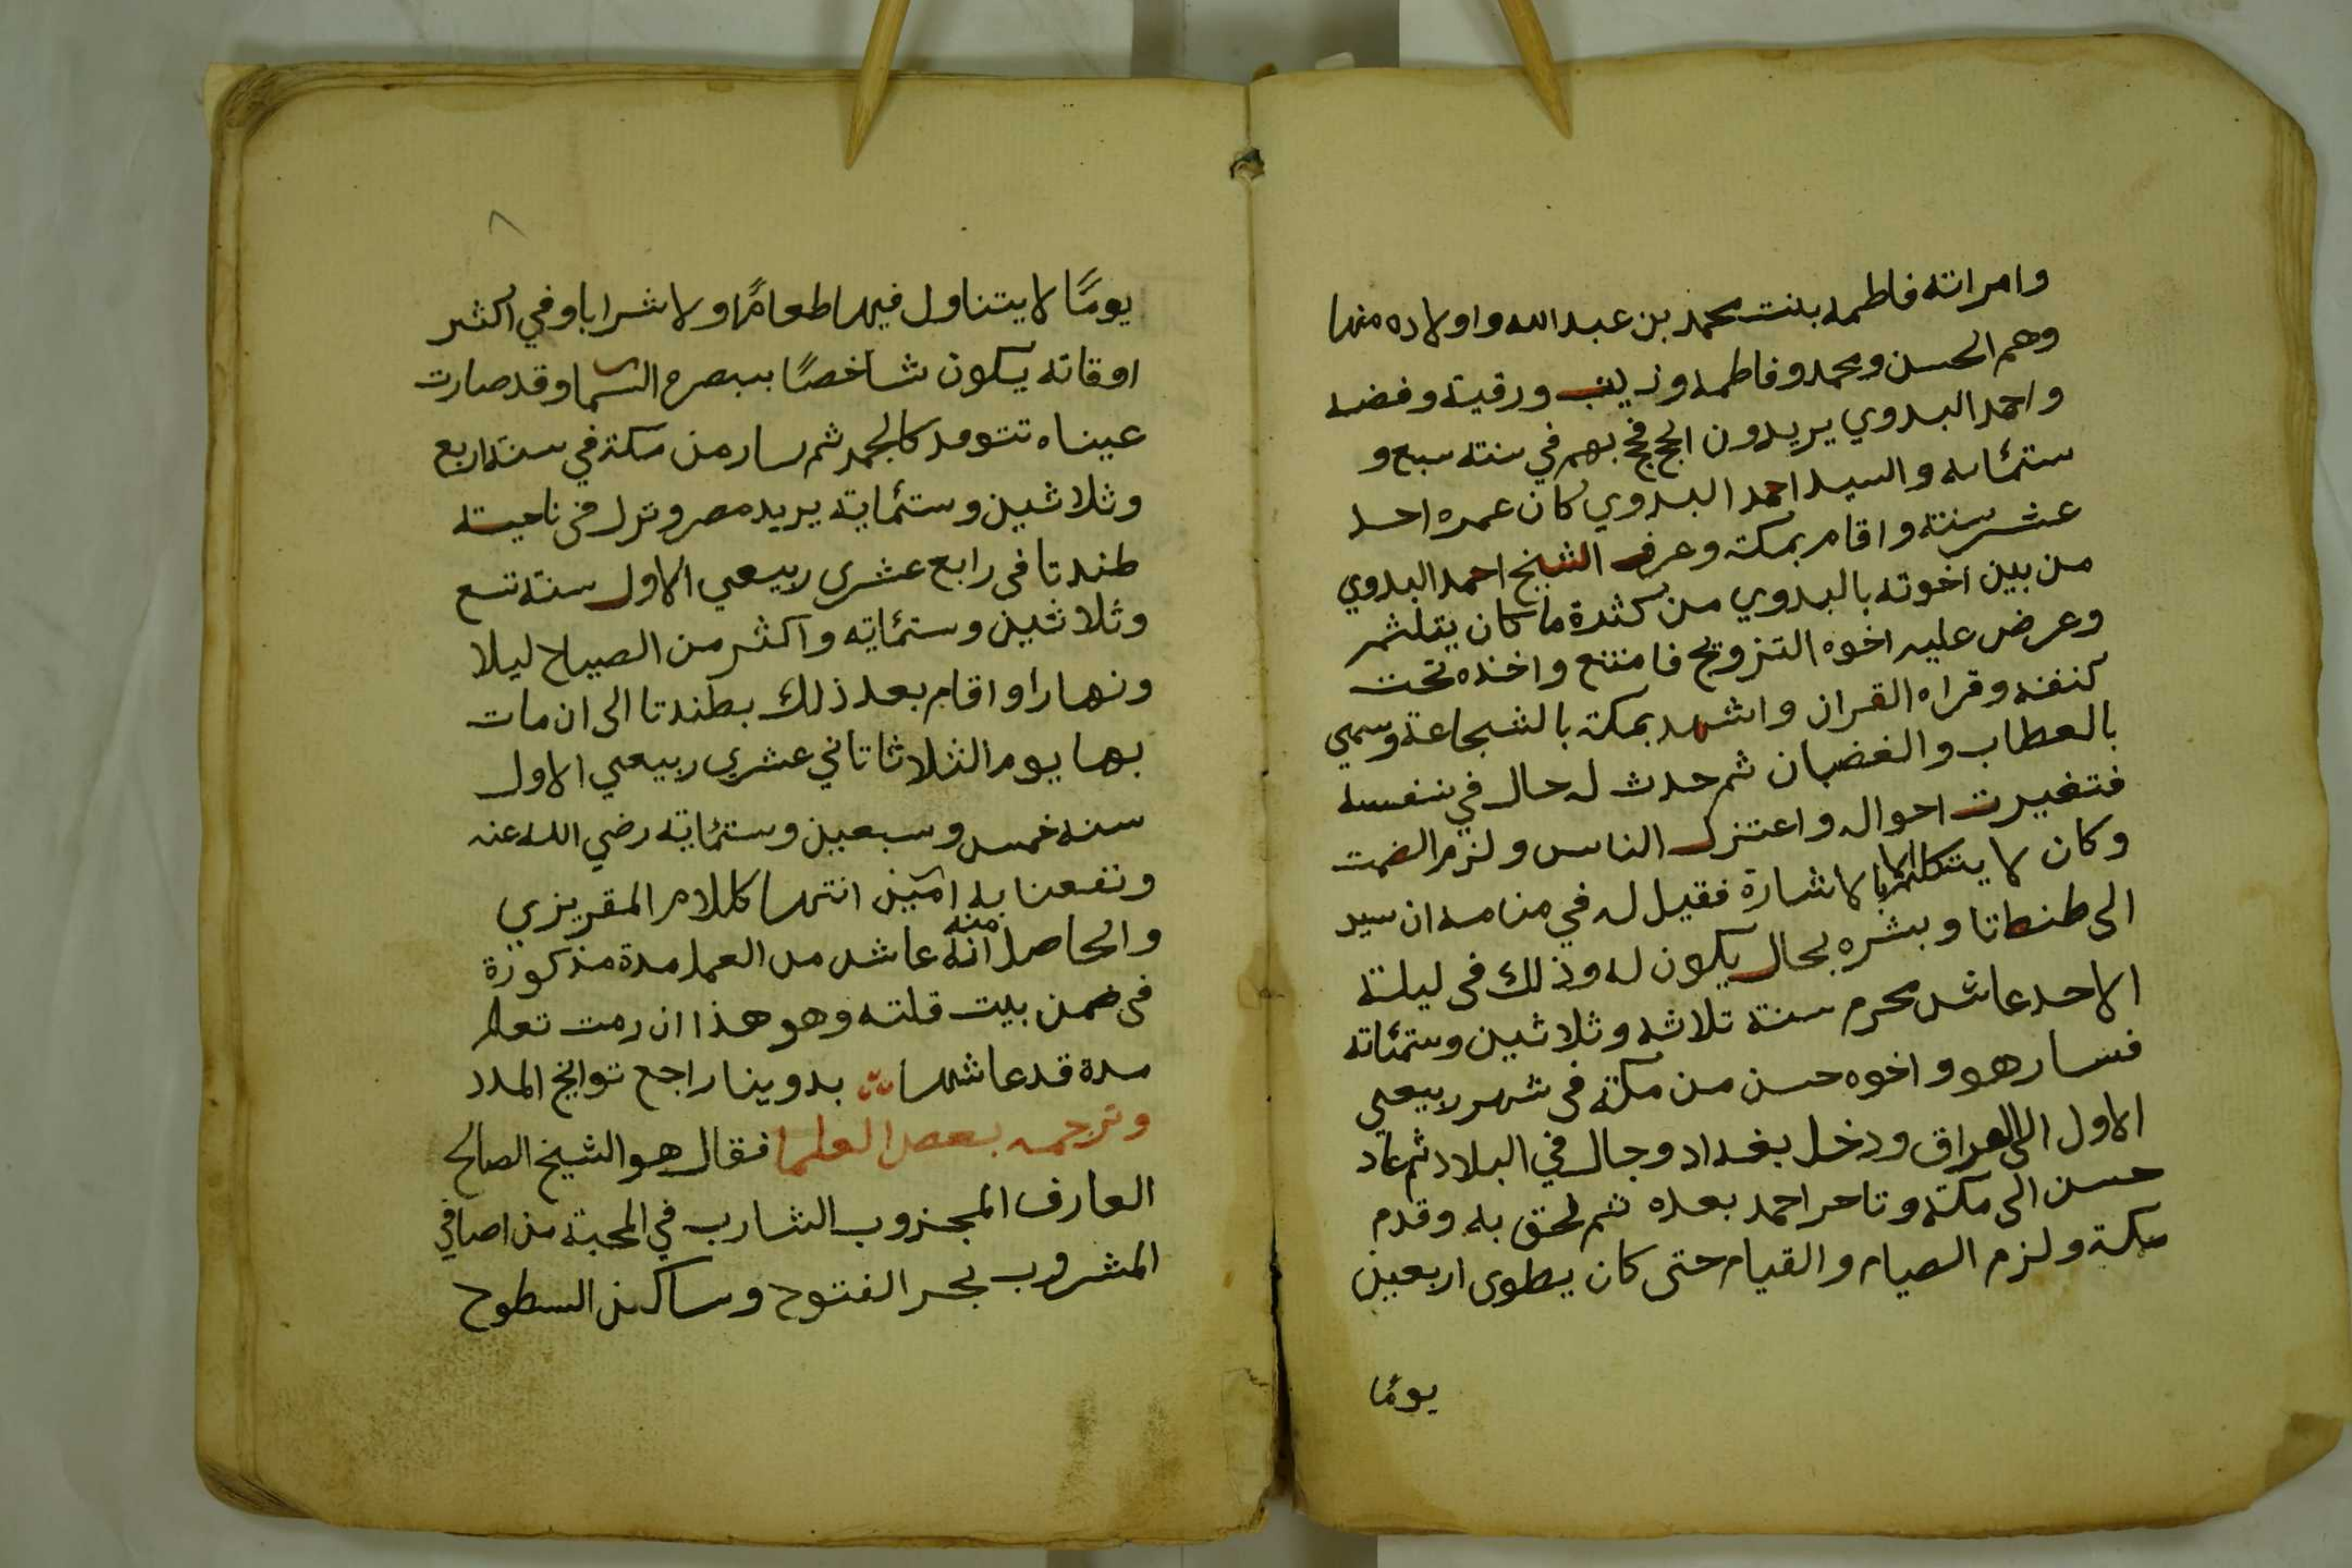 وامراته فاطمه بنت محمد بن عبد الله واولاده منها
وهم الحسن ومحمد وفاطمه وزينب ورقية وفضه
واحمد البدوي يريدون الحج فحج بهم في سنته سبع و
ستمائه والسيد احمد البدوي كان عمره احد
عشر سنته واقام بمكته وعرف الشيخ احمد البدوي
من بين اخوته بالبدوي من كثرة ما كان يتلثم
وعرض عليه اخوه التزويج فامتنع واخذه تحت
كنفه وقراه القران واشهد بمكته بالشجاعة وسمي
بالعطاب والغضبان ثم حدث له حال في نفسه
فتغيرت احواله واعتزل الناس ولزم الصمت
وكان لا يتكلم الا بالاشارة فقيل له في منامه ان سير
الى طنطاتا وبشره بحال يكون له وذلك فى ليلتة
الاحد عاشر محرم سنتة ثلاثه وثلاثين وستمائة
فسار هو واخوه حسن من مكة فى شهر ربيعي
الاول الى العراق ودخل بغداد وجال في البلاد ثم عاد
حسن الى مكة وتاخر احمد بعده ثم لحق به وقدم
مكة ولزم الصيام والقيام حتى كان يطوى اربعين
يومًا
٨
يومًا لا يتناول فيها طعامًا ولا شرابا وفي اكثر
اوقاته يكون شاخصًا ببصره السما وقد صارت
عيناه تتوقد كالجمر ثم سار من مكة في سنة اربع
وثلاثين وستمائة يريد مصر ونزل فى ناحيته
طندتا فى رابع عشرى ربيعي الاول سنة تسع
وثلاثين وستمائه واكثر من الصياح ليلا
ونهارا واقام بعد ذلك بطندتا الى ان مات
بها يوم الثلاثا ثاني عشري ربيعي الاول
سنه خمس وسبعين وستمائة رضي الله عنه
ونفعنا به امين انتها كلام المقريزي
والحاصل انه منه عاش من العمل مدة مذكورة
فى ضمن بيت قلته وهو هذا ان رمت تعلم
مدة قد عاشها بدوينا راجع تواريخ المدد
وترجمه بعض العلما فقال هو الشيخ الصالح
العارف المجذوب الشارب في المحبة من اصافي
المشروب بحر الفتوح وساكن السطوح